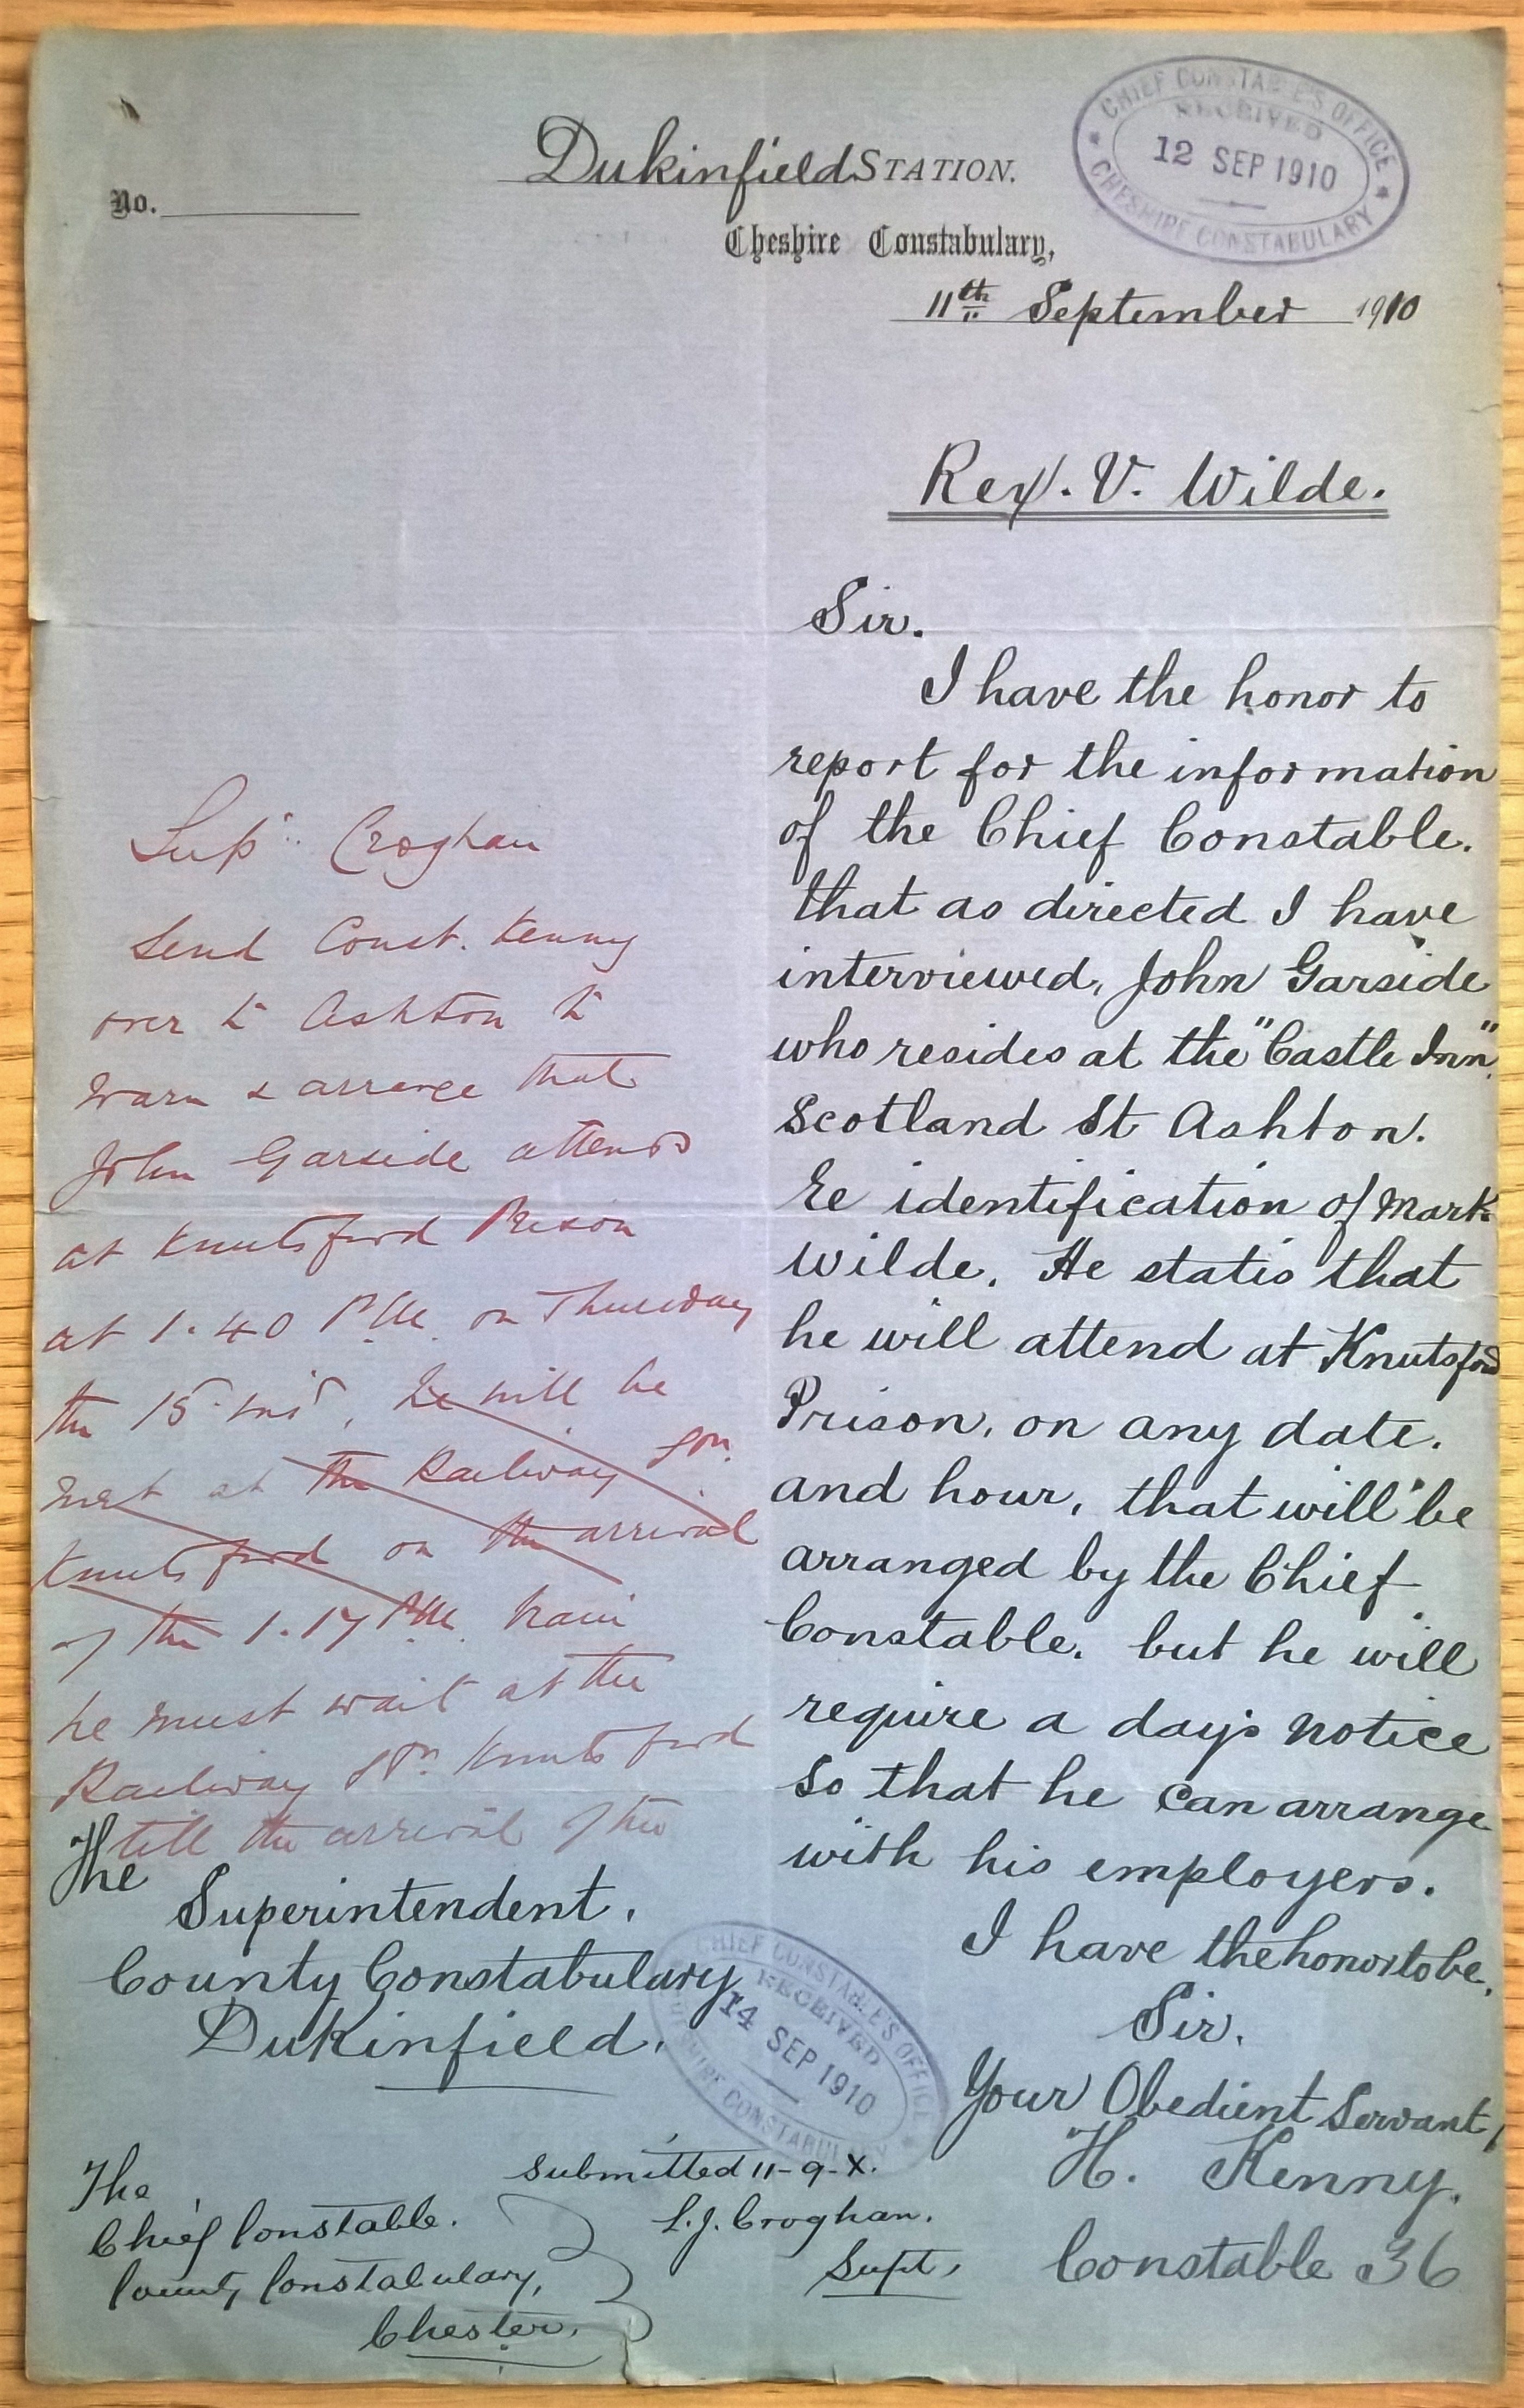 No.
Dukinfield STATION.
Cheshire Constabulary,
11th September 1910
CHIEF CONSTABLE'S OFFICE
RECEIVED
12 SEP 1910
CHESHIRE CONSTABULARY
Rex. V. Wilde.
Sir.
I have the honor to
report for the information
of the Chief Constable.
that as directed I have
interviewed, John Garside
who resides at the "Castle Inn"
Scotland St Ashton.
Re identification of Mark
Wilde. He states that
he will attend at Knutsford
Prison, on any date.
and hour, that will be
arranged by the Chief
Constable. but he will
require a days notice
so that he can arrange
with his employers.
I have the honor to be,
Sir.
Your Obedient Servant,
H. Kenny.
Constable 36
Supt. Croghan
Send Const. Kenny
over to Ashton to
warn & arrange that
John Garside attends
at Knutsford Prison
at 1.40 P.M. on Thursday
the 15 inst, he will be
met at the Railway Stn.
Knutsford on the arrival
of the 1.17 P.M. train
he must wait at the
Railway Stn. Knutsford
till the arrival of the
The
Superintendent.
County Constabulary
Dukinfield.
CHIEF CONSTABLE'S OFFICE
RECEIVED
14 SEP 1910
CHESHIRE CONSTABULARY
The
Chief Constable.
County Constabulary,
Chester.
Submitted 11-9-X.
L.J. Croghan.
Supt.